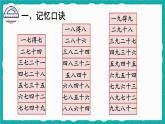 一、记忆口诀
一七得七
二七十四
三七二十一
四七二十八
五七三十五
六七四十二
七七四十九
一八得八
二八十六
三八二十四
四八三十二
五八四十
六八四十八
七八五十六
八八六十四
一九得九
二九十八
三九二十七
四九三十六
五九四十五
六九五十四
七九六十三
八九七十二
九九八十一